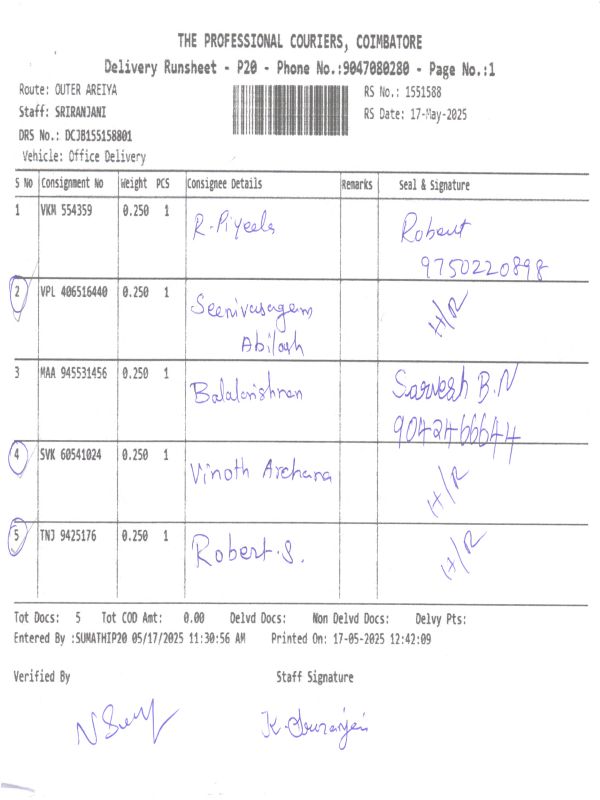 THE PROFESSIONAL COURIERS, COIMBATORE
Delivery Runsheet - P20 - Phone No.:9047080280 - Page No.:1
Route: OUTER AREIYA
RS No.: 1551588
Staff: SRIRANJANI
RS Date: 17-May-2025
DRS No.: DCJB155158801
Vehicle: Office Delivery
S No Consignment No Weight PCS Consignee Details Remarks Seal & Signature
1 VKM 554359 0.250 1 R. Piyeela Robert
9750220898
2 VPL 406516440 0.250 1 Seenivasagam H/R
Abilash
3 MAA 945531456 0.250 1 Balakrishnan Sarvesh B.N
9042466644
4 SVK 60541024 0.250 1 Vinoth Archana H/R
5 TNJ 9425176 0.250 1 Robert.S. H/R
Tot Docs: 5 Tot COD Amt: 0.00 Delvd Docs: Non Delvd Docs: Delvy Pts:
Entered By :SUMATHIP20 05/17/2025 11:30:56 AM Printed On: 17-05-2025 12:42:09
Verified By Staff Signature